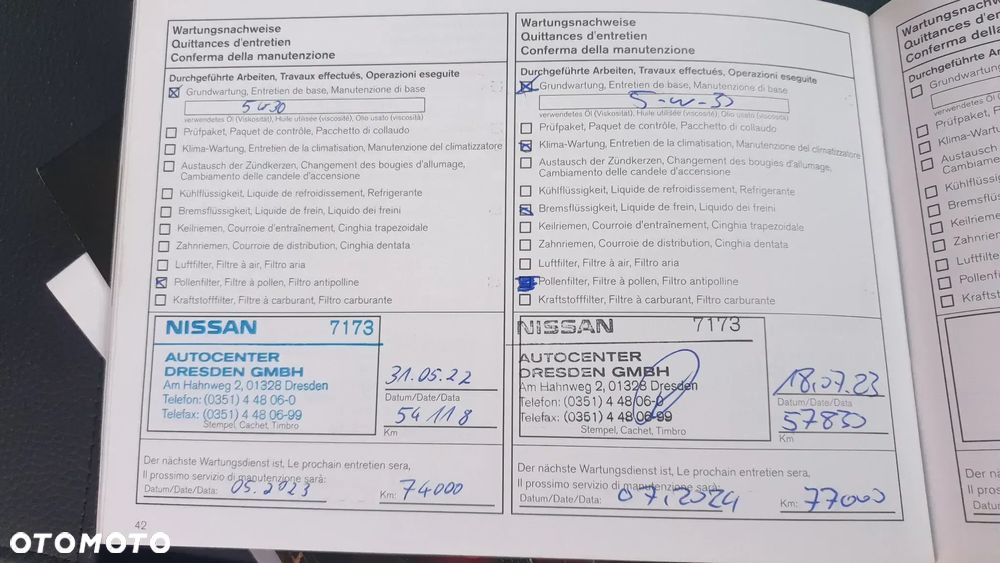 Wartungsnachweise
Quittances d'entretien
Conferma della manutenzione
Durchgeführte Arbeiten, Travaux effectués, Operazioni eseguite
Grundwartung, Entretien de base, Manutenzione di base
5W30
verwendetes Öl (Viskosität), Huile utilisée (viscosité), Olio usato (viscosità)
Prüfpaket, Paquet de contrôle, Pacchetto di collaudo
Klima-Wartung, Entretien de la climatisation, Manutenzione del climatizzatore
Austausch der Zündkerzen, Changement des bougies d'allumage,
Cambiamento delle candele d'accensione
Kühlflüssigkeit, Liquide de refroidissement, Refrigerante
Bremsflüssigkeit, Liquide de frein, Liquido dei freini
Keilriemen, Courroie d'entraînement, Cinghia trapezoidale
Zahnriemen, Courroie de distribution, Cinghia dentata
Luftfilter, Filtre à air, Filtro aria
Pollenfilter, Filtre à pollen, Filtro antipolline
Kraftstofffilter, Filtre à carburant, Filtro carburante
NISSAN 7173
AUTOCENTER
DRESDEN GMBH
Am Hahnweg 2, 01328 Dresden
Telefon: (0351) 4 48 06-0
Telefax: (0351) 4 48 06-99
Stempel, Cachet, Timbro
31.05.22
Datum/Date/Data
54118
Km
Der nächste Wartungsdienst ist, Le prochain entretien sera,
Il prossimo servizio di manutenzione sarà:
Datum/Date/Data: 05.2023 Km: 74000
42
Wartungsnachweise
Quittances d'entretien
Conferma della manutenzione
Durchgeführte Arbeiten, Travaux effectués, Operazioni eseguite
Grundwartung, Entretien de base, Manutenzione di base
5-W-30
verwendetes Öl (Viskosität), Huile utilisée (viscosité), Olio usato (viscosità)
Prüfpaket, Paquet de contrôle, Pacchetto di collaudo
Klima-Wartung, Entretien de la climatisation, Manutenzione del climatizzatore
Austausch der Zündkerzen, Changement des bougies d'allumage,
Cambiamento delle candele d'accensione
Kühlflüssigkeit, Liquide de refroidissement, Refrigerante
Bremsflüssigkeit, Liquide de frein, Liquido dei freini
Keilriemen, Courroie d'entraînement, Cinghia trapezoidale
Zahnriemen, Courroie de distribution, Cinghia dentata
Luftfilter, Filtre à air, Filtro aria
Pollenfilter, Filtre à pollen, Filtro antipolline
Kraftstofffilter, Filtre à carburant, Filtro carburante
NISSAN 7173
AUTOCENTER
DRESDEN GMBH
Am Hahnweg 2, 01328 Dresden
Telefon: (0351) 4 48 06-0
Telefax: (0351) 4 48 06-99
Stempel, Cachet, Timbro
18.07.23
Datum/Date/Data
57830
Km
Der nächste Wartungsdienst ist, Le prochain entretien sera,
Il prossimo servizio di manutenzione sarà:
Datum/Date/Data: 07.2024 Km: 77000
Quittances
Conferma della
Durchgeführte
Grundwartung
verwendetes Öl
Prüfpaket,
Klima-Wartung
Austausch
Cambiamento
Kühlflüssig
Bremsflüss
Keilriemen,
Zahnriemen
Luftfilter
Pollenfilter
Kraftst
Der nächste
Il prossimo
Datum/Date
OTOMOTO